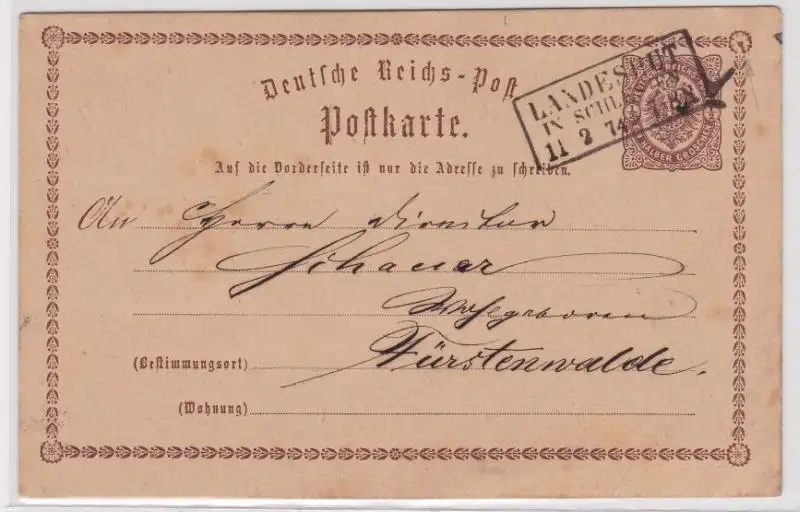 Deutsche Reichs-Post
Postkarte.
Auf die Vorderseite ist nur die Adresse zu schreiben.
LANDESHUT
IN SCHL
11 2 74
HALBER GROSCHEN
An Herrn Direktor
Schauer
Wohlgeboren
(Bestimmungsort) Fürstenwalde.
(Wohnung)